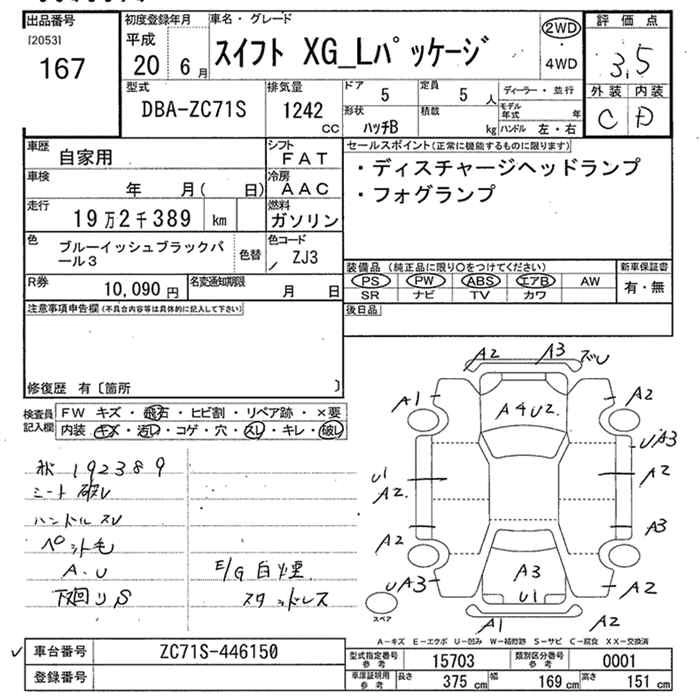 出品番号
[2053]
167
初度登録年月
平成
20 6月
車名・グレード
スイフト XG_Lパッケージ
2WD
・
4WD
評価点
3.5
外装 内装
C D
型式
DBA-ZC71S
排気量
1242
CC
ドア 5
定員 5 人
形状
ハッチB
積載
kg
ディーラー・並行
モデル年式 年
ハンドル 左・右
車歴
自家用
シフト
FAT
車検
年 月( 日)
冷房
AAC
走行
19万2千389 km
燃料
ガソリン
色
ブルーイッシュブラックパール3
色替
色コード
/ ZJ3
R券
10,090 円
名変通知期限
月 日
セールスポイント(正常に機能するものに限ります)
・ディスチャージヘッドランプ
・フォグランプ
装備品 (純正品に限り〇をつけてください)
PS PW ABS エアB AW
SR ナビ TV カワ
新車保証書
有・無
後日品
注意事項申告欄(不具合内容等は具体的に記入して下さい)
修復歴 有〔箇所 〕
検査員記入欄
FW キズ・飛石・ヒビ割・リペア跡・×要
内装 キズ・汚レ・コゲ・穴・スレ・キレ・破レ
192389
シート 破レ
ハンドル スレ
ペット毛
A.U
下回りS
E/G 白煙
スタッドレス
A2 A3 ズレ
A1 A4U2. A2
UA3
U1
A2. A2
A2 A3
UA3 A3 A2
U1
A1 A2
スペア
A-キズ E-エクボ U-凹み W-補修跡 S-サビ C-腐食 XX-交換済
車台番号 ZC71S-446150
登録番号
型式指定番号
参考
15703
類別区分番号
参考
0001
車庫証明用
参考
長さ 375 cm 幅 169 cm 高さ 151 cm